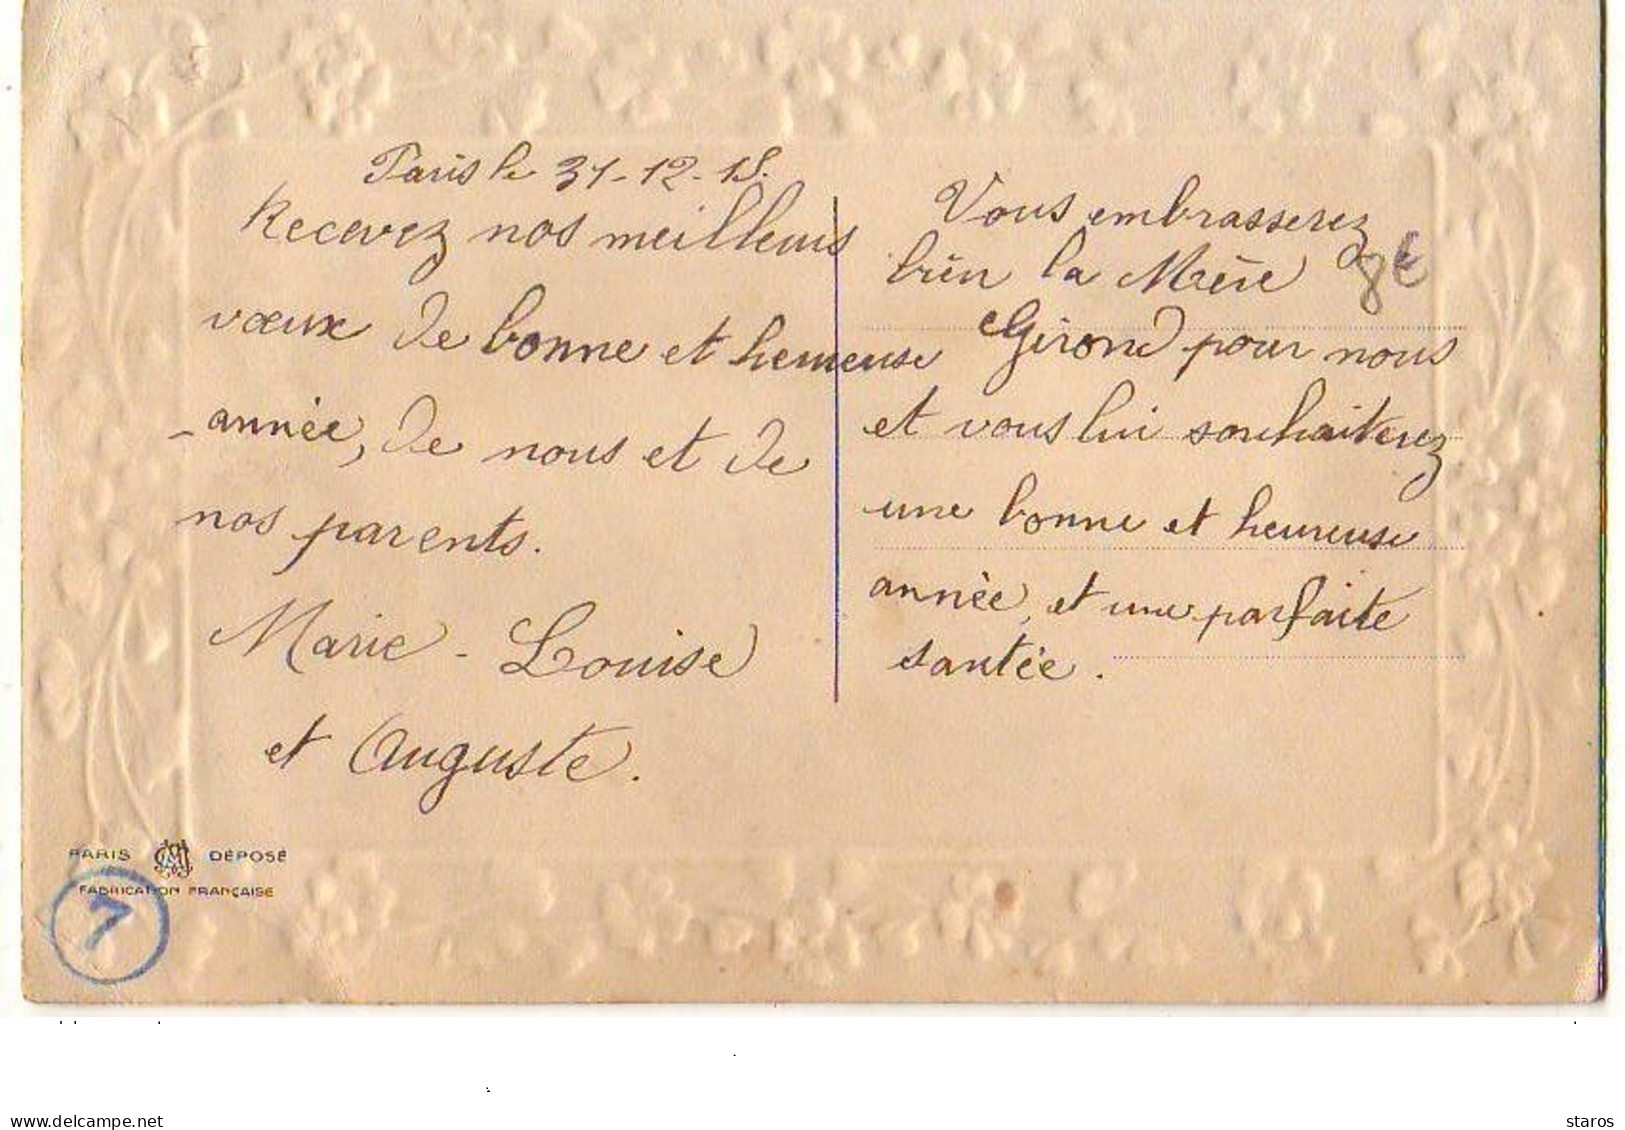 Paris le 31-12-18.
Recevez nos meilleurs
vœux de bonne et heureuse
année, de nous et de
nos parents.
Marie-Louise
et Auguste.
Vous embrasserez
bien la Mère
Girond pour nous
et vous lui souhaiterez
une bonne et heureuse
année, et une parfaite
santée.
8€
PARIS DÉPOSÉ
FABRICATION FRANÇAISE
7
www.delcampe.net
staros